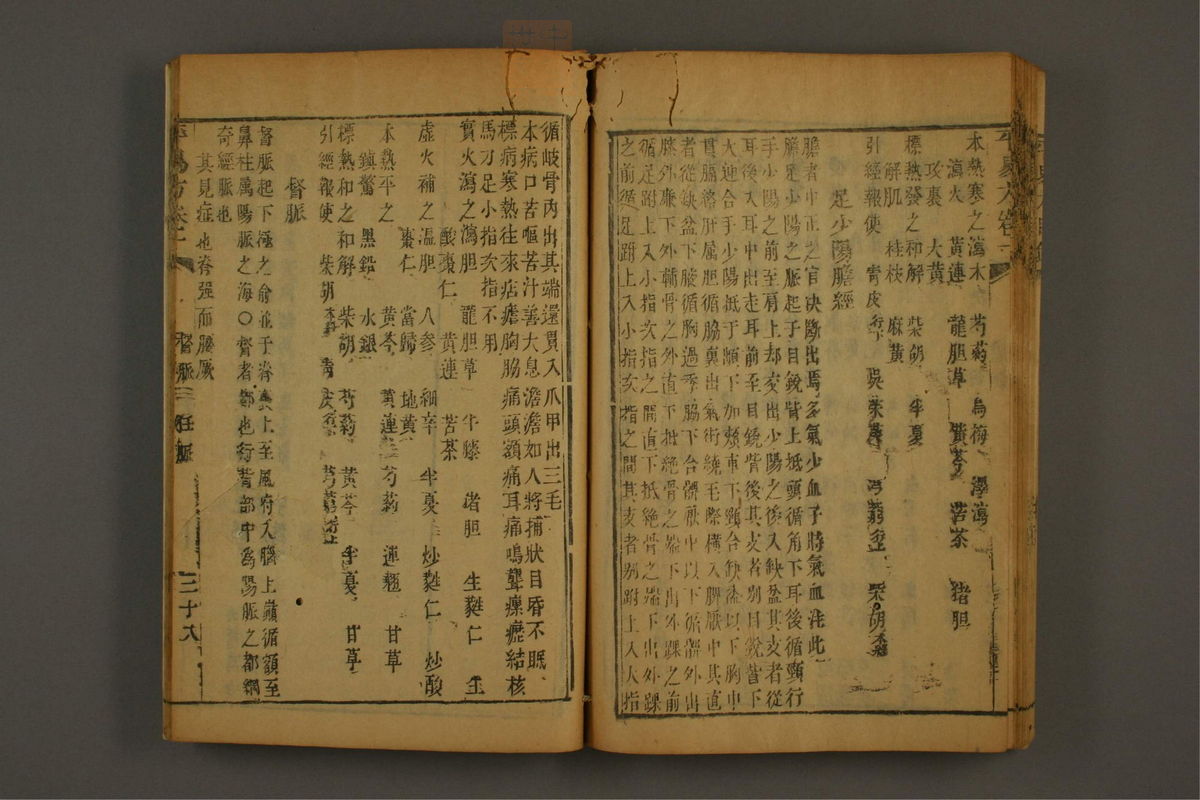 木熱寒之瀉木 芍藥 烏梅 澤瀉
瀉火 黃連 龍胆草 黃芩 苦茶 猪胆
攻裏 大黃
標熱發之和解 柴胡 半夏
解肌 桂枝 麻黃
引經報使 青皮 吳茱萸 川芎 柴胡
足少陽膽經
膽者中正之官決斷出焉多氣少血子時氣血注此
膽足少陽之脈起于目銳眥上抵頭循角下耳後循頸行
手少陽之前至肩上却交出少陽之後入缺盆其支者從
耳後入耳中出走耳前至目銳眥後其支者別目銳眥下
大迎合手少陽抵于䪼下加頰車下頸合缺盆以下胸中
貫膈絡肝屬胆循脇裏出氣街繞毛際橫入髀厭中其直
者從缺盆下腋循胸過季脇下合髀厭中以下循髀外出
膝外廉下外輔骨之外直下抵絶骨之端下出外踝之前
循足跗上入小指次指之間直下抵絶骨之端下出外踝
之前循足跗上入小指次指之間其支者別跗上入大指
循岐骨內出其端還貫入爪甲出三毛
本病口苦嘔苦汁善大息澹澹如人將捕狀目昏不眠
標病寒熱往來痁瘧胸脇痛頭額痛耳痛鳴聾瘰癧結核
馬刀足小指次指不用
實火瀉之瀉胆 龍胆草 牛膝 猪胆 生蕤仁 生
酸棗仁 黃連 苦茶
虛火補之溫胆 人參 細辛 半夏 炒蕤仁 炒酸
棗仁 當歸 地黃
本熱平之 黃芩 黃連 芍藥 連翹 甘草
鎮驚 黑鉛 水銀
標熱和之和解 柴胡 芍藥 黃芩 半夏 甘草
引經報使 柴胡 青皮 川芎
督脈
督脈起下極之俞並于脊裏上至風府入腦上巔循額至
鼻柱屬陽脈之海〇督者都也行背部中爲陽脈之都綱
奇經脈也
其見症也脊强而腰厥
督脈 任脈
三十六